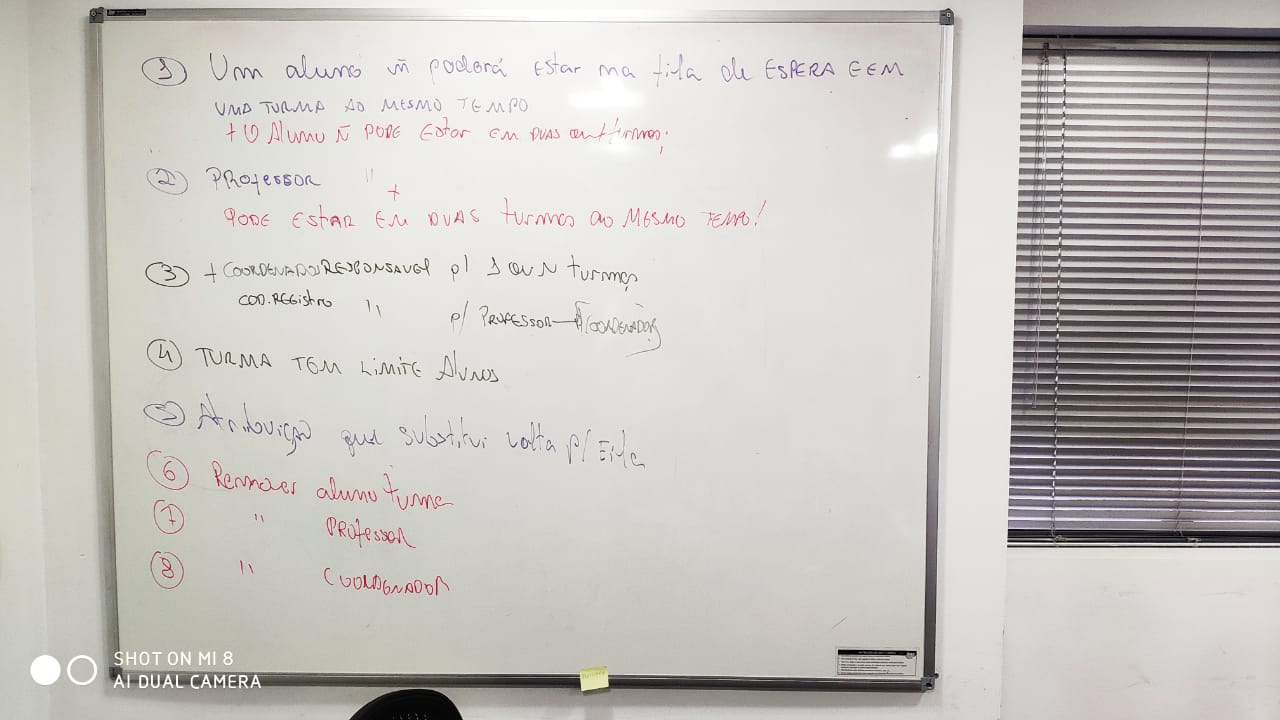 1 Um aluno ñ poderá estar na fila de ESPERA E EM
UMA TURMA AO MESMO TEMPO
+ O Aluno Ñ PODE Estar EM DUAS turmas;
2 PROfessOR "
+
PODE ESTAR EM DUAS turmas ao MESMO TEMPO!
3 + COORDENADOR RESPONSAVEl p/ 1 OU N turmas
COD. REGIStro " p/ PROFESSOR COORDENADOR
4 TURMA TEM LIMITE Alunos
5 Atribuição que substitui volta p/ Fila
6 Remover aluno turma
7 " PROfessOR
8 " COORDENADOR
SHOT ON MI 8
AI DUAL CAMERA